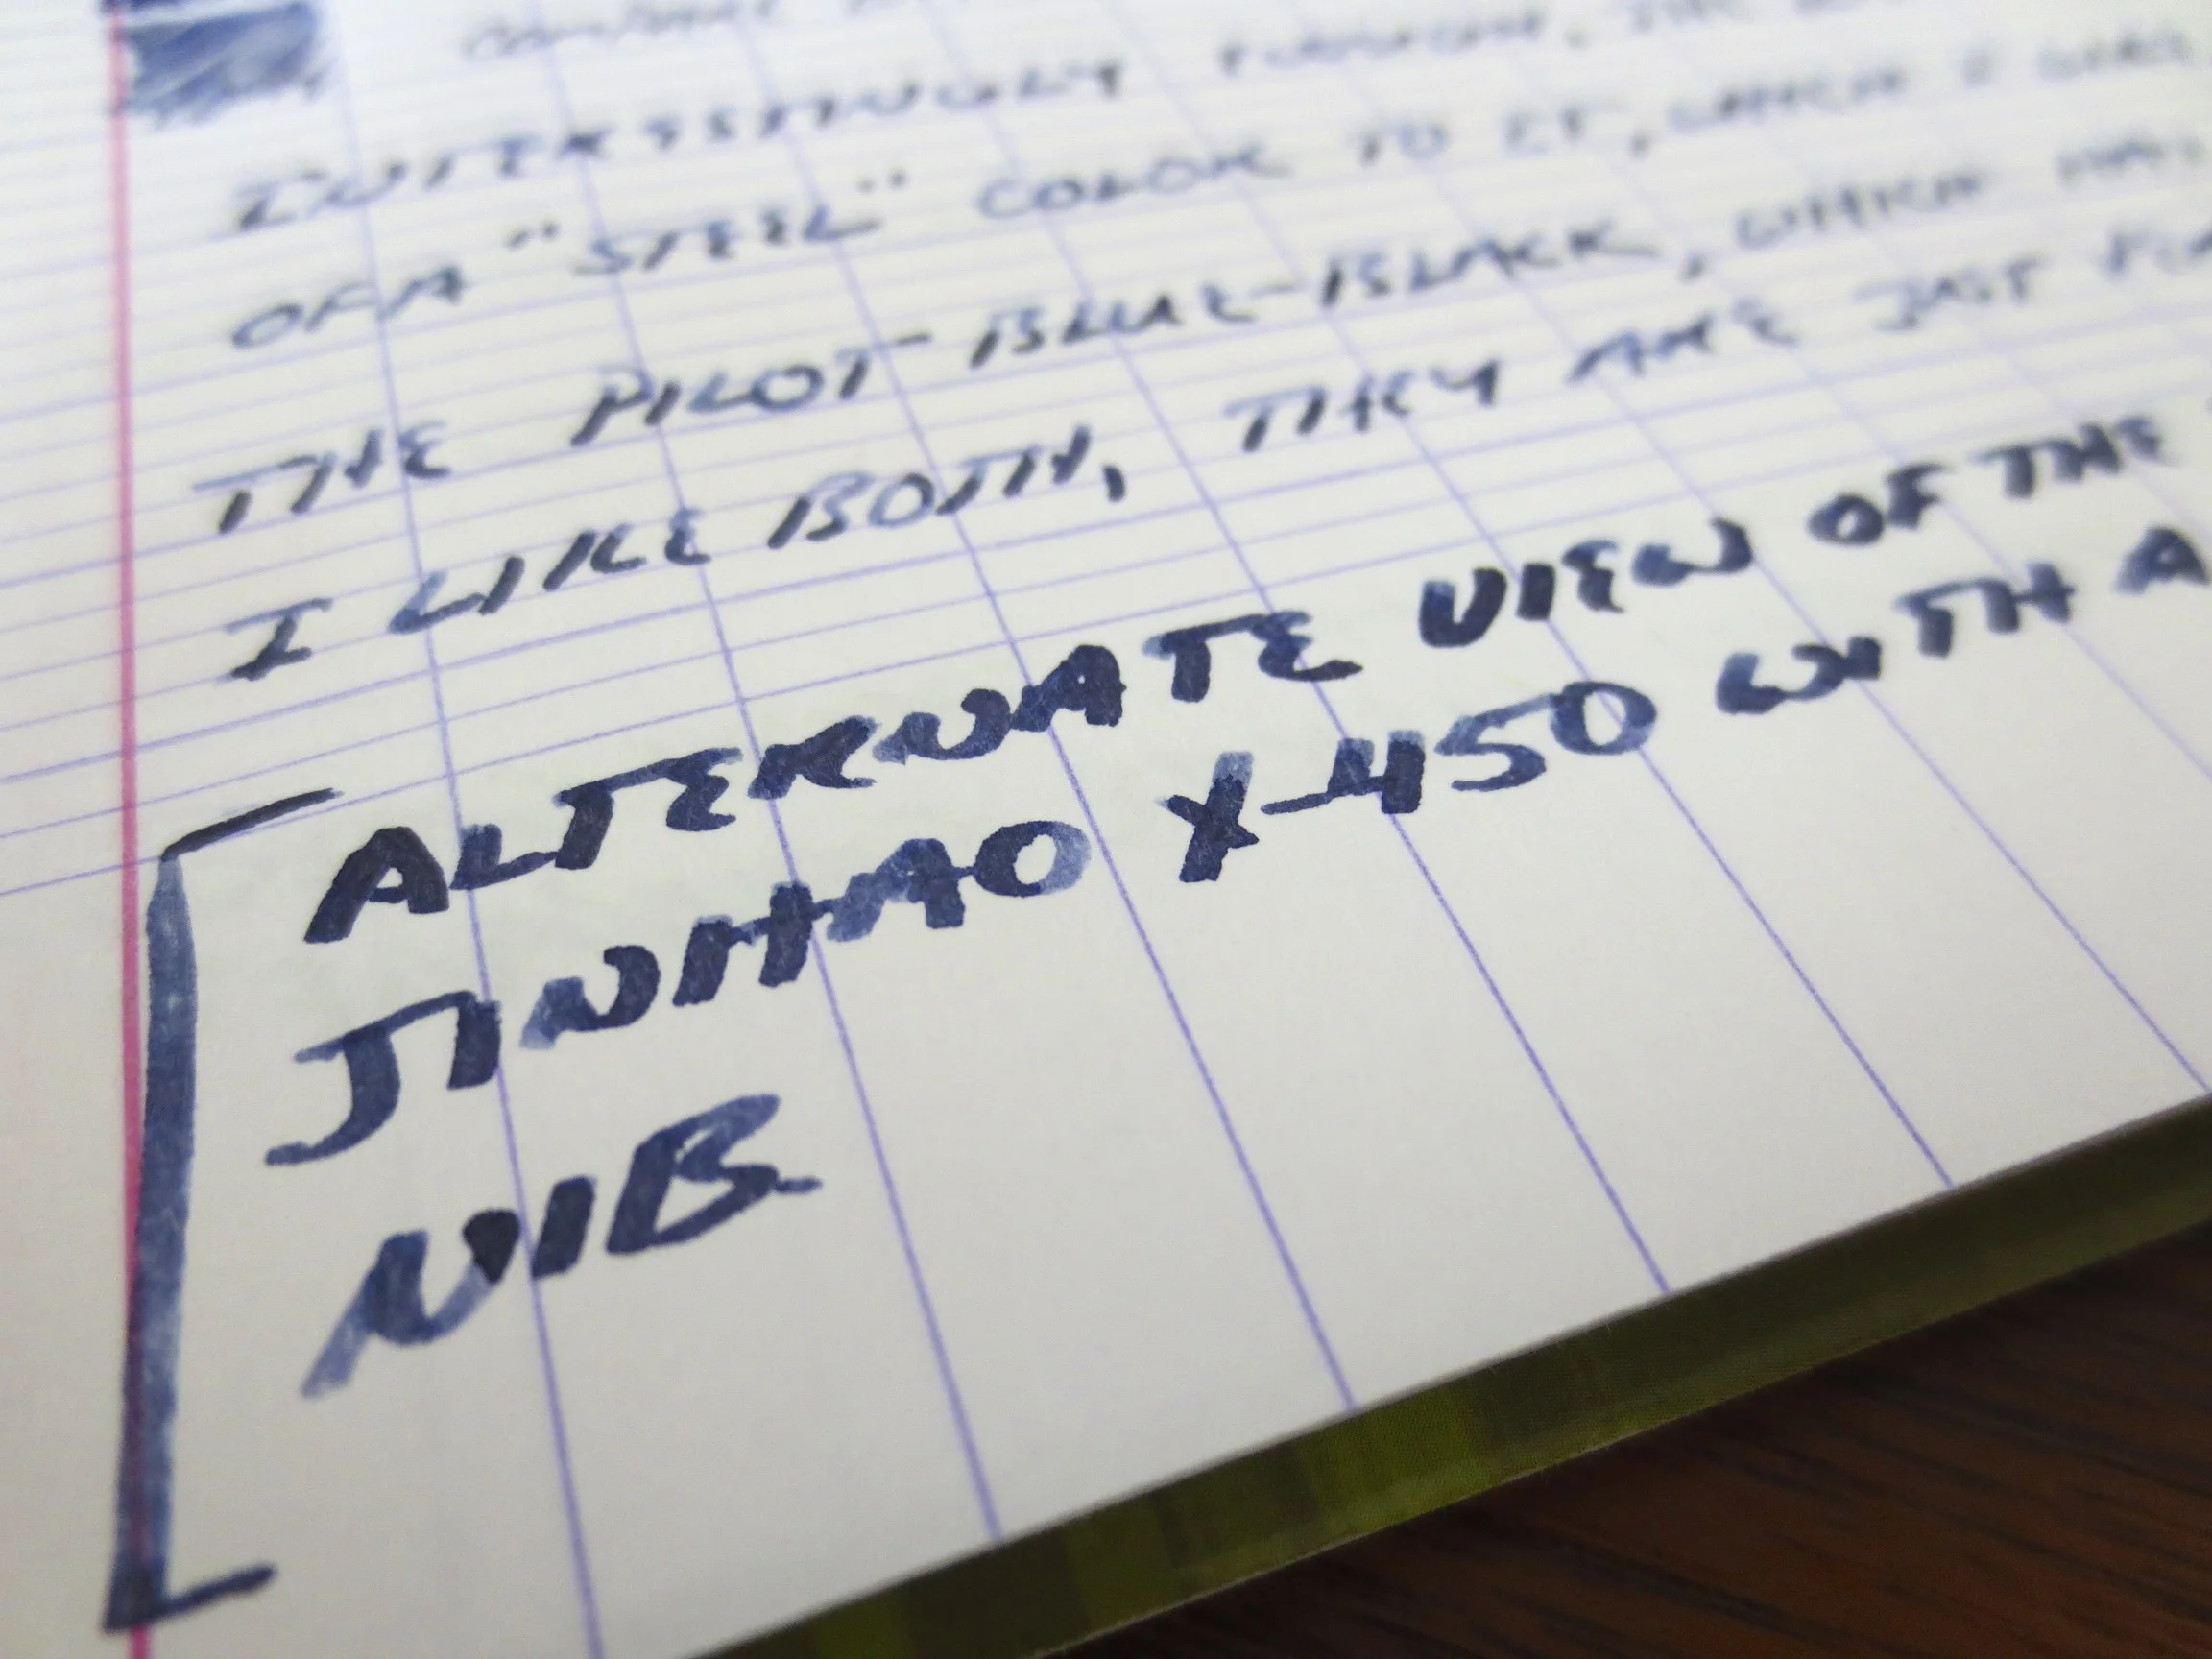 INTERESTINGLY
OF A "STEEL" COLOR TO IT, WHICH I
THE PILOT BLUE-BLACK, WHICH HAS
I LIKE BOTH, THEY ARE JUST
ALTERNATE VIEW OF THE
JINHAO X-450 WITH A
NIB